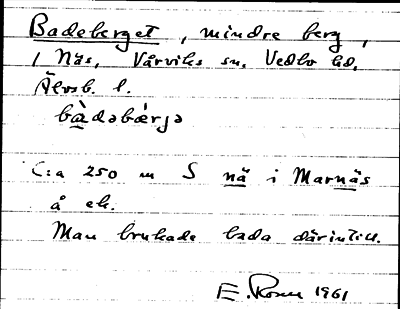 Badeberget, mindre berg,
i Näs, Vårviks sn, Vedbo hd,
Älvsb. l.
bàdəbǽrjə
C:a 250 m S nä i Marnäs
å ek.
Man brukade bada därintill.
E. 1961